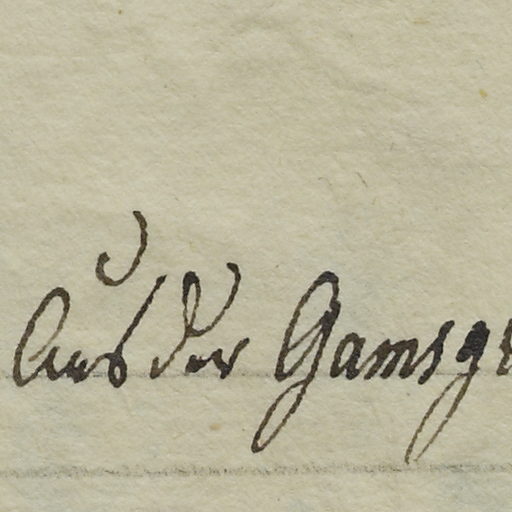 Aus der Gamsgr